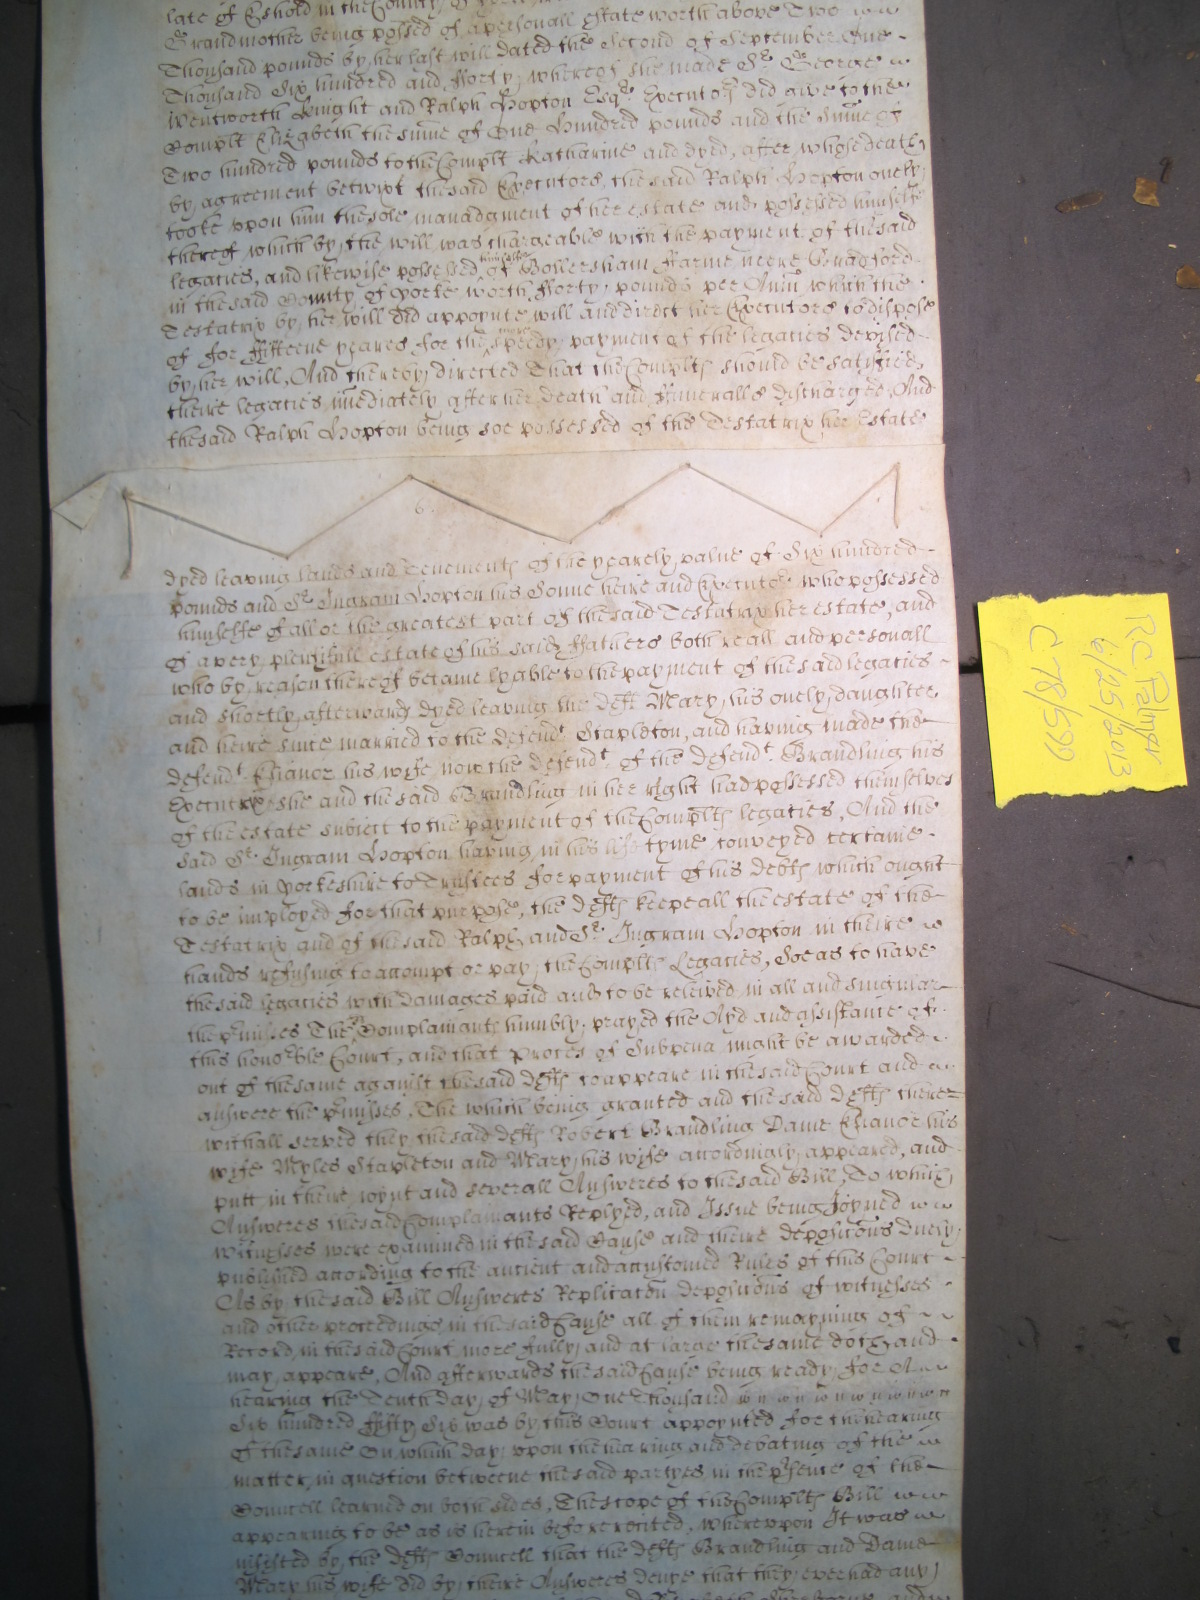 late of Eshold in the County of
Grandmother being possed of a personall estate worth above Two
Thousand pounds by her last will dated the Second of September One
Thousand Six hundred and fforty, whereof she made Sr. George
Wentworth Knight and Ralph Hopton Esqr. Executors did give to the
Complt Elizabeth the sume of One hundred pounds and the Sume of
Two hundred pounds to the Complt Katharine and dyed, after whose death
by agreement betwixt the said Executors, the said Ralph Hopton onely
tooke upon him the sole managment of her estate and possessed himselfe
thereof which by the will was chargeable with the payment of the said
legacies, and likewise possessed himselfe of Bollersham ffarme neere Bradford
in the said County of Yorke worth fforty pounds per Anum which the
Testatrix by her will did appoynte will and direct her Executors to dispose
of for ffifteene yeares for the more speedy payment of the legacies devised
by her will, And thereby directed That the Complts should be satisfied
theire legacies imediately after her death and ffuneralls discharged And
the said Ralph Hopton being soe possessed of the Testatrix her Estate
6
dyed leaving lands and Tenements of the yearely value of Six hundred
pounds and Sr. Ingram Hopton his Sonne heire and Executor who possessed
himselfe of all or the greatest part of the said Testatrix her estate, and
of a very plentifull estate of his said ffathers both reall and personall
who by reason thereof became lyable to the payment of the said legacies
and shortly afterwards dyed leaving the Deft Mary his onely daughter
and heire since married to the defendt. Stapleton, and having made the
defendt. Elianor his wife now the defendt. of the defendt. Brandling his
Executrix she and the said Brandling in her right had possessed themselves
of the estate subiect to the payment of the Complts legacies, And the
said Sr. Ingram Hopton having in his life tyme conveyed certaine
lands in Yorkeshire to Trustees for payment of his debts which ought
to be imployed for that purpose, the Defts keepe all the estate of the
Testatrix and of the said Ralph and Sr. Ingram Hopton in theire
hands refusing to accompt or pay the Complts Legacies, Soe as to have
the said legacies with Damages paid and to be releived in all and singular
the pmisses The Complainants humbly prayed the Ayd and assistance of
this honoble Court, and that Proces of Subpena might be awarded
out of the same against the said Defts to appeare in the said Court and
answere the pmisses. The which being granted and the said Defts there
withall served they the said Defts Robert Brandling Dame Elianor his
wife Myles Stapleton and Mary his wife accordingly appeared, and
putt in theire ioynt and severall Answeres to the said Bill, To which
Answeres the said Complainants Replyed, and Issue being Joyned
witnesses were examined in the said Cause and theire depositions duely
published according to the ancient and accustomed Rules of this Court
As by the said Bill Answeres Replicacon depositions of witnesses
and other proceedings in the said Cause all of them remayning of
Record in the said Court more fully and at large the same doth and
may appeare, And afterwards the said Cause being ready for
hearing the Tenth day of May One Thousand
Six hundred ffifty Six was by this Court appoynted for the hearing
of the same On which day upon the hearing and debating of the
matter in question betweene the said partyes in the psence of the
Councell learned on both sides, The scope of the Complts Bill
appearing to be as is herein before recited, whereupon It was
insisted by the Defts Councell that the Defts Brandling and Dame
Mary his wife did by theire Answeres denye that they ever had any
RC Palmer
6/25/2013
C 78/599